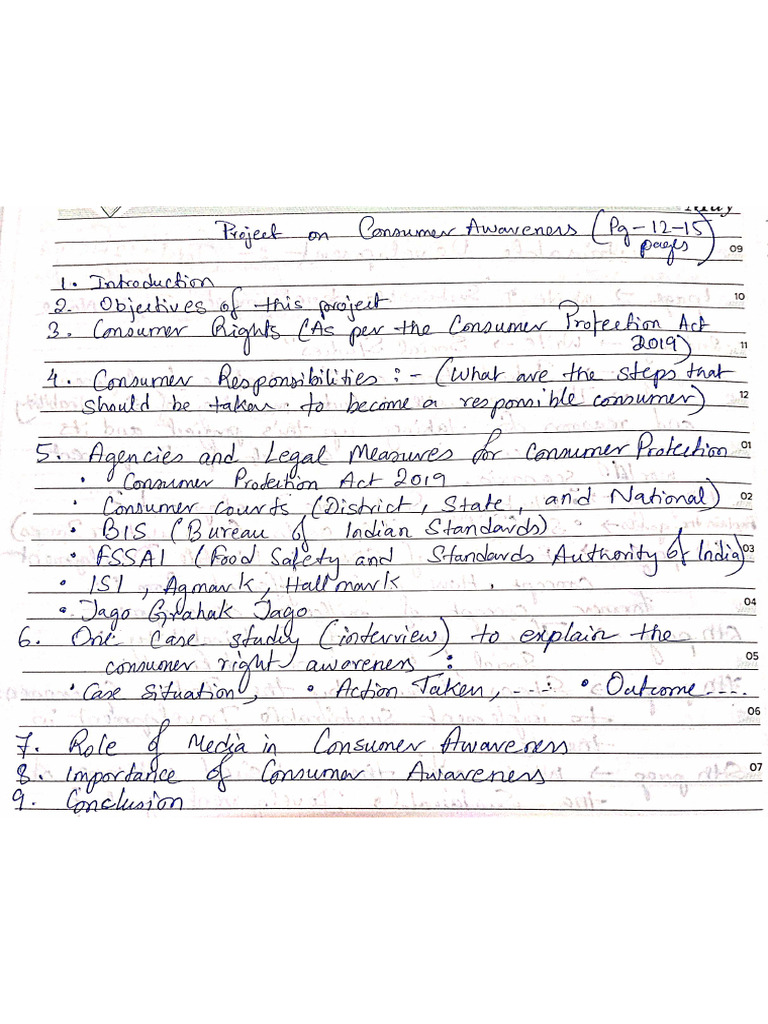 May
Project on Consumer Awareness (Pg-12-15
pages)
09
1. Introduction
10
2. Objectives of this project
3. Consumer Rights (As per the Consumer Protection Act
2019)
11
4. Consumer Responsibilities :- (What are the steps that
should be taken to become a responsible consumer)
12
5. Agencies and Legal Measures for Consumer Protection
01
• Consumer Protection Act 2019
• Consumer courts, (District, State, and National)
02
• BIS (Bureau of Indian Standards)
• FSSAI (Food Safety and Standards Authority of India)
03
• ISI, Agmark, Hallmark
• Jago Grahak Jago
04
6. One case study (interview) to explain the
consumer right awareness :
05
• Case Situation, • Action Taken, ---: • Outcome ----
06
7. Role of Media in Consumer Awareness
8. Importance of Consumer Awareness
07
9. Conclusion